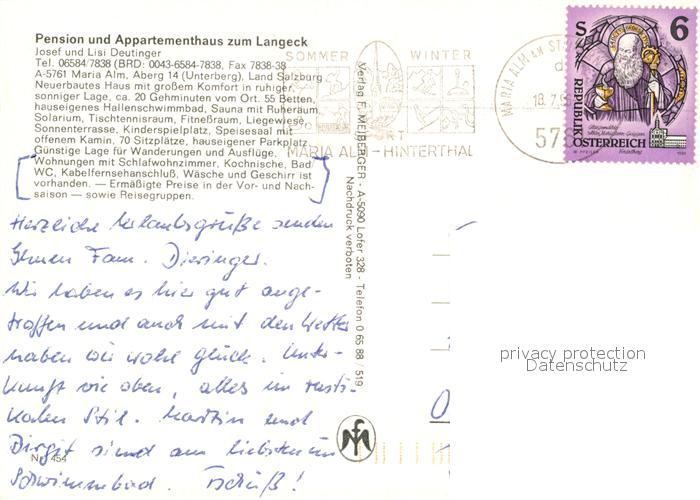 Pension und Appartementhaus zum Langeck
Josef und Lisi Deutinger
Tel. 06584/7838 (BRD: 0043-6584-7838, Fax 7838-38
A-5761 Maria Alm, Aberg 14 (Unterberg), Land Salzburg
Neuerbautes Haus mit großem Komfort in ruhiger,
sonniger Lage, ca. 20 Gehminuten vom Ort. 55 Betten,
hauseigenes Hallenschwimmbad, Sauna mit Ruheraum,
Solarium, Tischtennisraum, Fitneßraum, Liegewiese,
Sonnenterrasse, Kinderspielplatz, Speisesaal mit
offenem Kamin, 70 Sitzplätze, hauseigener Parkplatz.
Günstige Lage für Wanderungen und Ausflüge.
Wohnungen mit Schlafwohnzimmer, Kochnische, Bad/
WC, Kabelfernsehanschluß, Wäsche und Geschirr ist
vorhanden. — Ermäßigte Preise in der Vor- und Nach-
saison — sowie Reisegruppen.
Herzliche Urlaubsgrüße senden
Ihnen Fam. Dieringer.
Wir haben es hier gut ange-
troffen und auch mit dem Wetter
haben wir wohl Glück. Unter-
kunft wie oben, alles im rusti-
kalen Stil. Martin und
Birgit sind am liebsten im
Schwimmbad. Tschüß!
Nr. 454
Verlag F. MEIBERGER - A-5090 Lofer 328 - Telefon 0 65 88 / 519
Nachdruck verboten
SOMMER WINTER
SPORT
MARIA ALM - HINTERTHAL
MARIA ALM AM
18.7.
S 6
REPUBLIK
ÖSTERREICH
privacy protection
Datenschutz